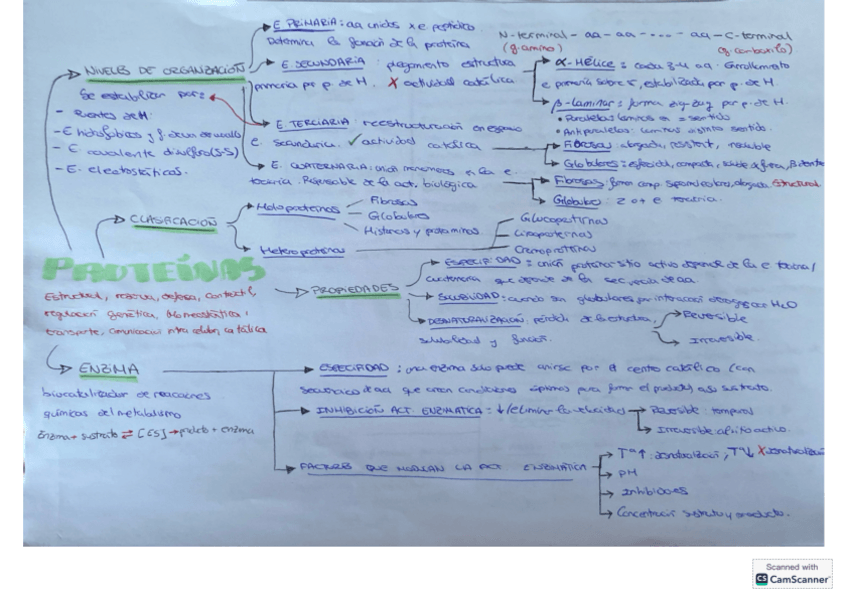 E PRIMARIA: aa unidos x e peptídico
Determina la función de la proteína
N-terminal - aa - aa - ---- - aa - C-terminal
(g. amino) (g. carboxilo)
NIVELES DE ORGANIZACIÓN
E SECUNDARIA: plegamiento estructura
primaria por p. de H. X actividad catálica
α-Hélice: cada 3-4 aa. Enrollamiento
e primaria sobre sí, estabilizada por p. de H.
β-laminar: forma zig-zag por p. de H.
• Paralelas: láminas en = sentido
• Antiparalelas: láminas distinto sentido.
Se estabilizan por:
- Puentes de H
- E hidrofóbicos y
- E covalente disulfuro (S-S)
- E. eleatostáticos.
E TERCIARIA: reestructuración en espacio
e. secundaria. ✓ actividad catálica
Fibrosas: alargada, resistent,
Globulares: esférida, compacta,
E. CUATERNARIA: unión monómeros en la e
terciaria. Responsable de la act. biológica
Fibrosas: forma comp. alargada. Structural.
Globular: 2 o + e terciaria.
CLASIFICACIÓN
Holoproteínas
Fibrosas
Globulares
Histonas y protaminas
Heteroproteínas
Glucoproteínas
Lipoproteínas
Cromoproteínas
PROTEÍNAS
Estructural, reserva, defensa, contráctil,
regulación genética, homeostática,
transporte, comunicación intracelular, catálica
PROPIEDADES
ESPECIFIDAD: unión proteína-sitio activo depende de la e terciaria/
cuaternaria que depende de la secuencia de aa.
SOLUBILIDAD: cuando son globulares por interacción H2O
DESNATURALIZACIÓN: pérdida de la estructura,
solubilidad y función.
Reversible
Irreversible.
ENZIMA
biocatalizador de reacciones
químicas del metabolismo
Enzima + sustrato ⇌ [ES] → producto + enzima
ESPECIFIDAD: una enzima solo puede unirse por el centro catálico (con
secuencias de aa que crean condiciones óptimas para formar el producto) a su sustrato.
INHIBICIÓN ACT. ENZIMÁTICA: ↓/elimina la velocidad
Reversible: temporal
Irreversible:
FACTORES QUE MODULAN LA ACT. ENZIMÁTICA
Tª ↑: desnaturalización, Tª ↓ X desnaturalización
pH
Inhibidores
Concentración sustrato y producto.
Scanned with
CS CamScanner